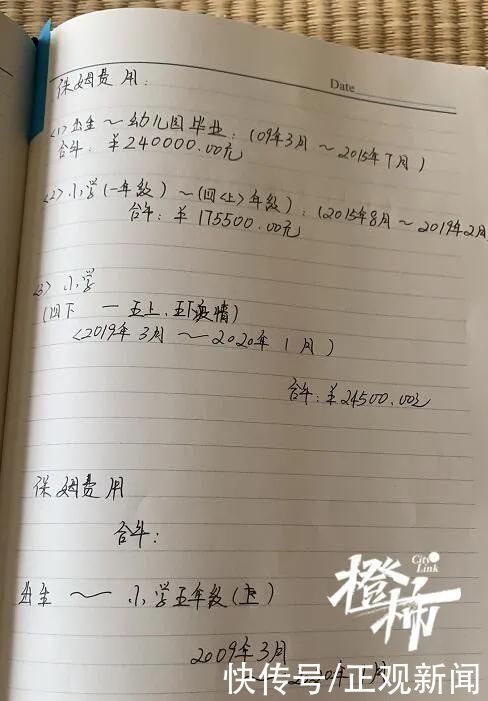 Date
保姆费用：
<1>出生～幼儿园毕业：(09年3月～2015年7月)
合计：￥240000.00元
<2>小学(一年级)～(四<上>年级)：(2015年8月～2019年2月
合计：￥175500.00元
<3>小学
(四下—五上、五下疫情)
<2019年3月～2020年1月)
合计：￥24500.00元
保姆费用
合计：
出生～小学五年级(上)
2009年3月
City
Link
橙柿
快传号/正观新闻